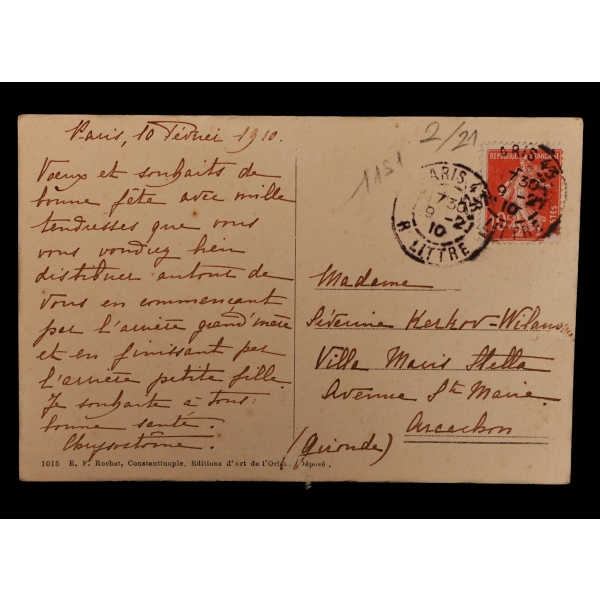 Paris, 10 Février 1910.
Voeux et souhaits de
bonne fête avec mille
tendresses que vous
vous voudrez bien
distribuer autour de
vous en commençant
par l'arrière grand'mère
et en finissant par
l'arrière petite fille.
Je souhaite à tous:
bonne santé.
Chrysostôme.
1151
2/21
PARIS
7 30
9 -2
10
R. LITTRE
Madame
Séverine Kerkov-Wilans
Villa Maris Stella
Avenue Ste Marie
Arcachon
(Gironde)
1015 E. F. Rochat, Constantinople. Editions d'art de l'Orient. Déposé.